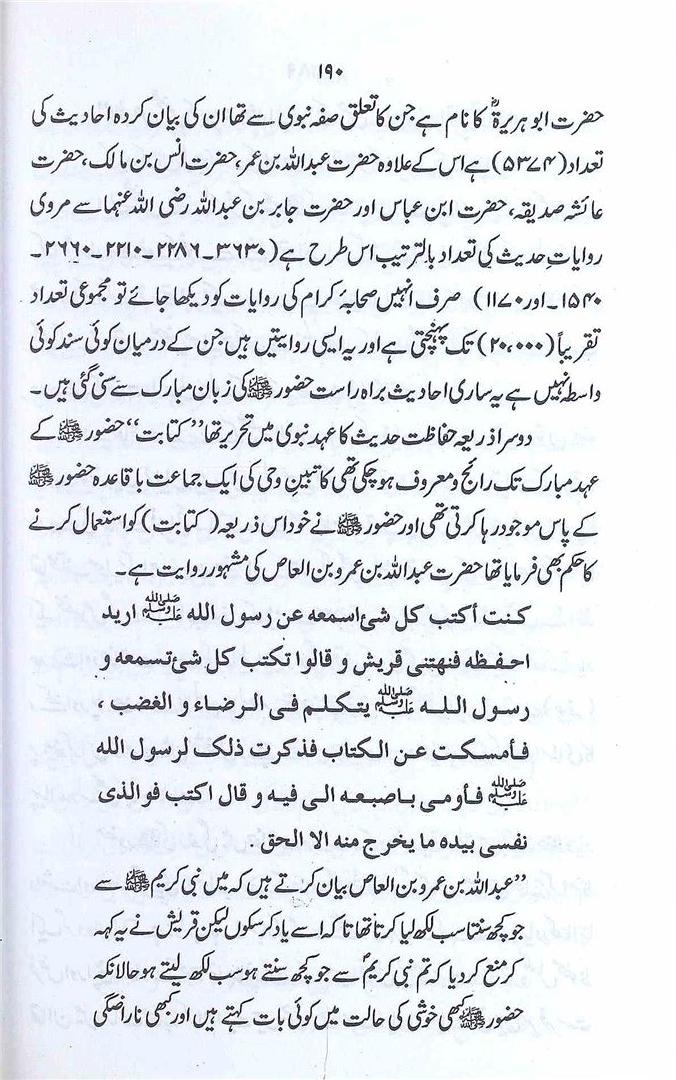 ۱۹۰
حضرت ابو ہریرۃؓ کا نام ہے جن کا تعلق صفہ نبوی سے تھا ان کی بیان کردہ احادیث کی
تعداد (۵۳۷۴) ہے اس کے علاوہ حضرت عبداللہ بن عمر، حضرت انس بن مالک، حضرت
عائشہ صدیقہ، حضرت ابن عباس اور حضرت جابر بن عبداللہ رضی اللہ عنہما سے مروی
روایاتِ حدیث کی تعداد بالترتیب اس طرح ہے (۲۶۳۰۔۲۲۸۶۔۲۲۱۰۔۲۶۶۰۔
۱۵۴۰۔اور ۱۱۷۰) صرف انہیں صحابہ کرام کی روایات کو دیکھا جائے تو مجموعی تعداد
تقریباً (۲۰،۰۰۰) تک پہنچتی ہے اور یہ ایسی روایتیں ہیں جن کے درمیان کوئی سند کوئی
واسطہ نہیں ہے یہ ساری احادیث براہ راست حضور ﷺ کی زبان مبارک سے سنی گئی ہیں۔
دوسرا ذریعہ حفاظت حدیث کا عہد نبوی میں تحریر تھا ”کتابت“ حضور ﷺ کے
عہد مبارک تک رائج و معروف ہوچکی تھی کاتبینِ وحی کی ایک جماعت باقاعدہ حضور ﷺ
کے پاس موجود رہا کرتی تھی اور حضور ﷺ نے خود اس ذریعہ (کتابت) کو استعمال کرنے
کا حکم بھی فرمایا تھا حضرت عبداللہ بن عمرو بن العاص کی مشہور روایت ہے۔
كنت أكتب كل شئ اسمعه عن رسول الله ﷺ اريد
احفظه فنهتنى قريش و قالوا تكتب كل شئ تسمعه و
رسول الله ﷺ يتكلم فى الرضاء و الغضب ،
فأمسكت عن الكتاب فذكرت ذلك لرسول الله
ﷺ فأومى باصبعه الى فيه و قال اكتب فوالذى
نفسى بيده ما يخرج منه الا الحق .
”عبداللہ بن عمرو بن العاص بیان کرتے ہیں کہ میں نبی کریم ﷺ سے
جو کچھ سنتا سب لکھ لیا کرتا تھا تاکہ اسے یاد کرسکوں لیکن قریش نے یہ کہہ
کر منع کردیا کہ تم نبی کریمؐ سے جو کچھ سنتے ہو سب لکھ لیتے ہو حالانکہ
حضور ﷺ کبھی خوشی کی حالت میں کوئی بات کہتے ہیں اور کبھی ناراضگی